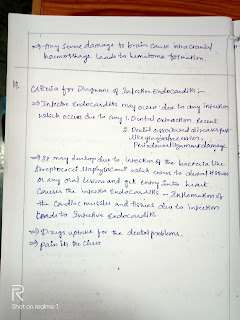 ⇒ Any severe damage to brain cause intracranial
haemorrhage leads to hematoma formation.
19. Criteria for Diagnosis of Infective Endocarditis :-
⇒ Infective Endocarditis may occur due to any infection
which occurs due to any 1. Dental extraction recent
2. Dental associated diseases past
like gingival
Periodontal ligament damage.
⇒ It may develop due to infection of the bacteria like
Streptococci Staphylococci which enters to dental tissues
or any oral lesions and get entry into heart
causes the infective Endocarditis – Inflammation of
the Cardiac muscles and tissues due to infection
leads to Infective Endocarditis
⇒ Drugs uptake for the dental problems.
⇒ Pain in the Chest
R
Shot on realme 1